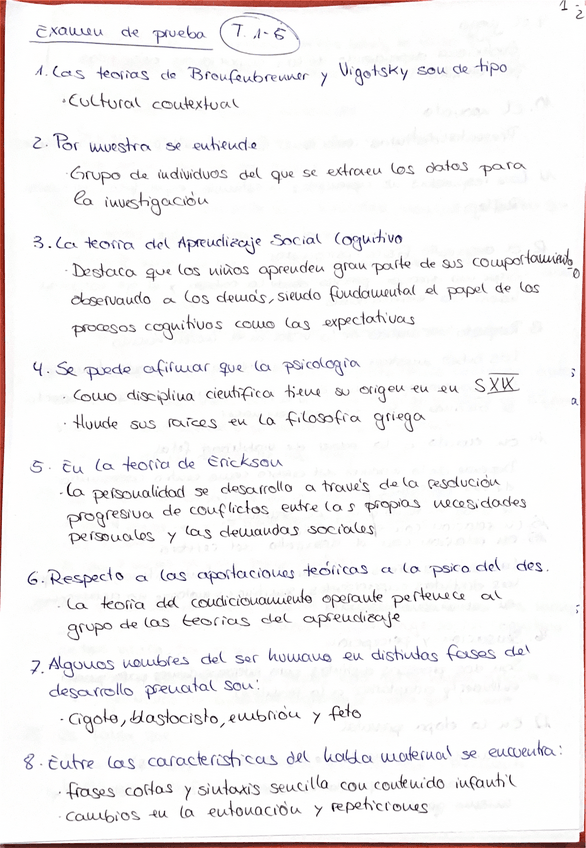 1-2
Examen de prueba T. 1-5
1. Las teorías de Bronfenbrenner y Vigotsky son de tipo
· Cultural contextual
2. Por muestra se entiende
· Grupo de individuos del que se extraen los datos para
la investigación
3. La teoría del Aprendizaje Social Cognitivo
· Destaca que los niños aprenden gran parte de sus comportamiento
observando a los demás, siendo fundamental el papel de los
procesos cognitivos como las expectativas
4. Se puede afirmar que la psicología
· Como disciplina científica tiene su origen en en S XIX
· Hunde sus raíces en la filosofía griega
5. En la teoría de Erickson
· La personalidad se desarrollo a través de la resolución
progresiva de conflictos entre las propias necesidades
personales y las demandas sociales
6. Respecto a las aportaciones teóricas a la psico del des.
· La teoría del condicionamiento operante pertenece al
grupo de las teorías del aprendizaje
7. Algunos nombres del ser humano en distintas fases del
desarrollo prenatal son:
· Cigoto, blastocisto, embrión y feto
8. Entre las características del habla maternal se encuentra:
· frases cortas y sintaxis sencilla con contenido infantil
· cambios en la entonación y repeticiones